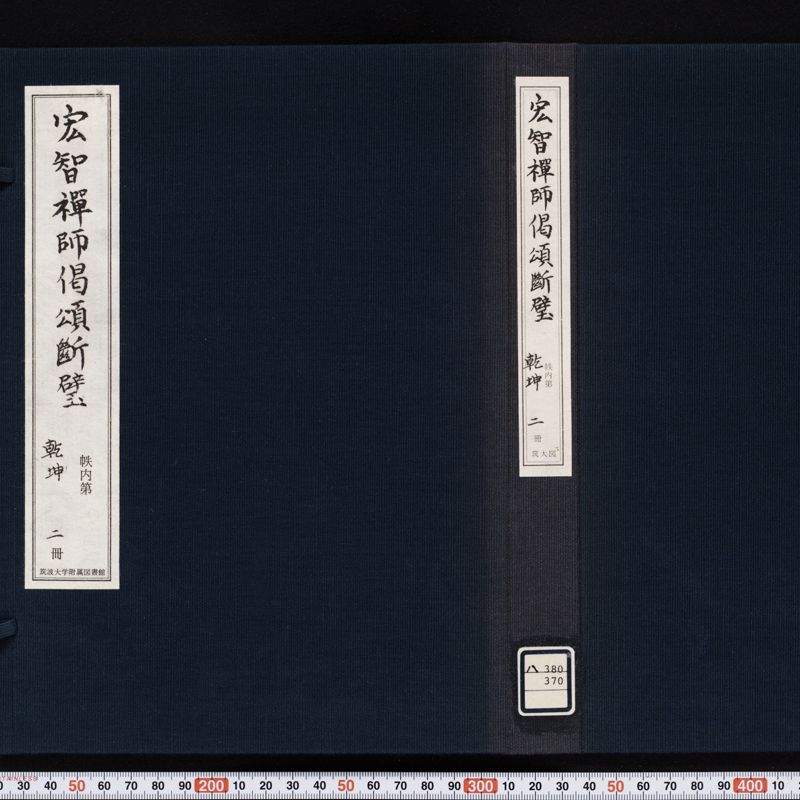 宏智禪師偈頌斷璧
乾坤
帙内第
二
冊
筑波大学附属図書館
宏智禪師偈頌斷璧
乾坤
帙内第
二
冊
筑大図
ハ 380
370
STAINLESS
30 40 50 60 70 80 90 200 10 20 30 40 50 60 70 80 90 300 10 20 30 40 50 60 70 80 90 400 10